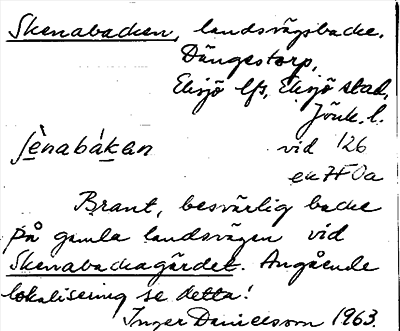 Skenabacken, landsvägsbacke.
Dängestorp,
Eksjö lfs, Eksjö stad,
Jönk. l.
ʃènabákan vid 126
ek 7F0a
Brant, besvärlig backe
på gamla landsvägen vid
Skenabackagärdet. Angående
lokalisering se detta!
Inger Danielsson 1963.